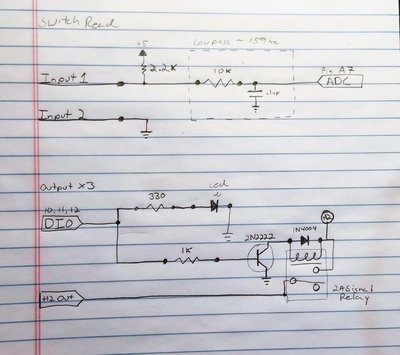 Switch Read
Lowpass ~ 159Hz
+5
2.2K
Input 1
10K
.1uF
Pin A7
ADC
Input 2
Output x3
10, 11, 12
DIO
330
Led
1K
2N2222
1N4004
12
+12 Out
2A Signal
Relay